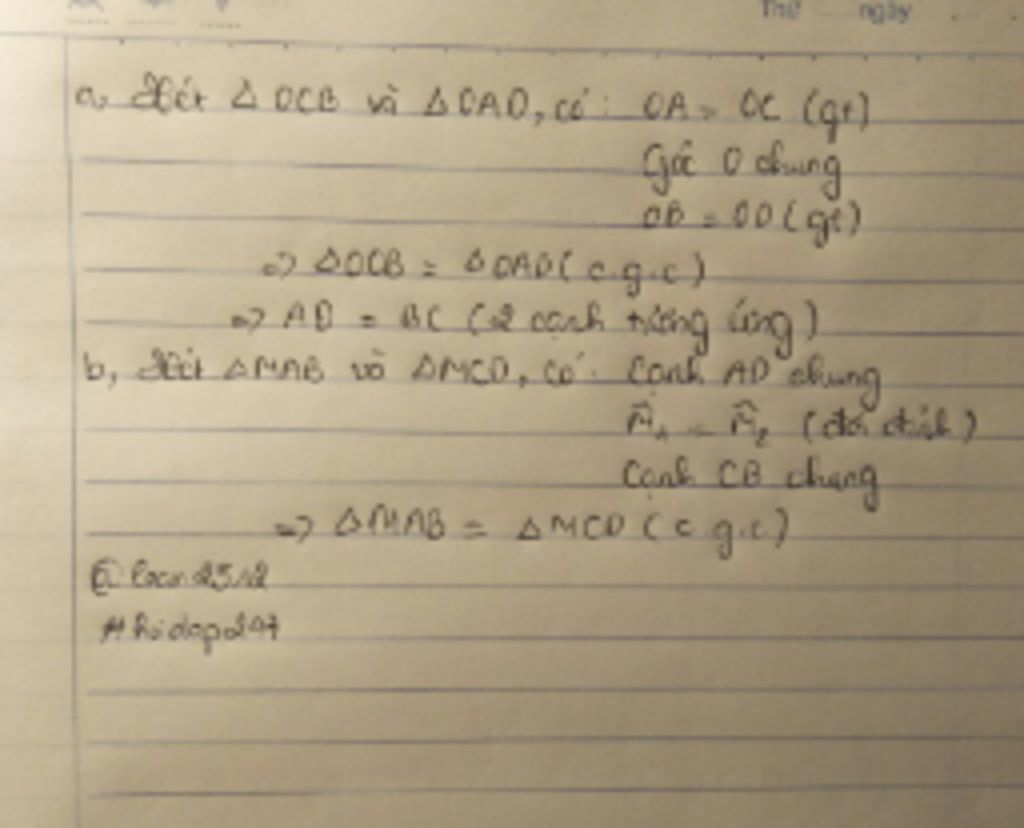 Thứ ngày
a, Xét Δ OCB và Δ OAD, có: OA = OC (gt)
Góc O chung
OB = OD (gt)
=> ΔOCB = ΔOAD (c.g.c)
=> AD = BC (2 cạnh tương ứng)
b, Xét ΔMAB và ΔMCD, có: Cạnh AD chung
M̂₁ = M̂₂ (đối đỉnh)
Cạnh CB chung
=> ΔMAB = ΔMCD (c.g.c)
#hoidap247